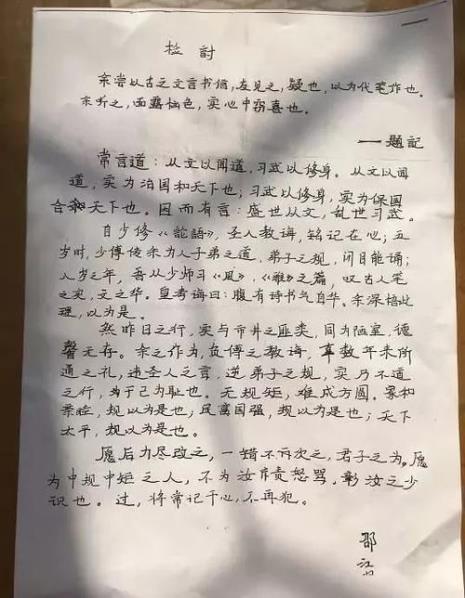 检討
余尝以古之文言书信，友见之，疑也，以为代笔作也。
余听之，面露怡色，实心中窃喜也。
——题記
常言道：从文以闻道，习武以修身。从文以闻
道，实为治国和天下也；习武以修身，实为保国
合和天下也。因而有言：盛世从文，乱世习武。
自少修《論語》，圣人教诲，铭记在心；五
岁时，少傅传余为人子弟之道，弟子之规，闭目能诵；
八岁之年，吾从少师习《風》，《雅》之篇，叹古人笔
之实，文之华。皇考诲曰：腹有诗书气自华。余深悟此
理，以为是。
然昨日之行，实与市井之匪类，同为陋室，德
馨无存。余之作为，负傅之教诲，辜数年来所
通之礼，违圣人之言，逆弟子之规，实乃不道
之行，为于己为耻也。无规矩，难成方圆。家和
亲睦，规以为是也；民富国强，规以为是也；天下
太平，规以为是也。
愿后力尽改之，一错不再次之，君子之为。愿
为中规中矩之人，不为汝斥责怒骂，彰汝之少
识也。过，将常记于心，不再犯。
邵